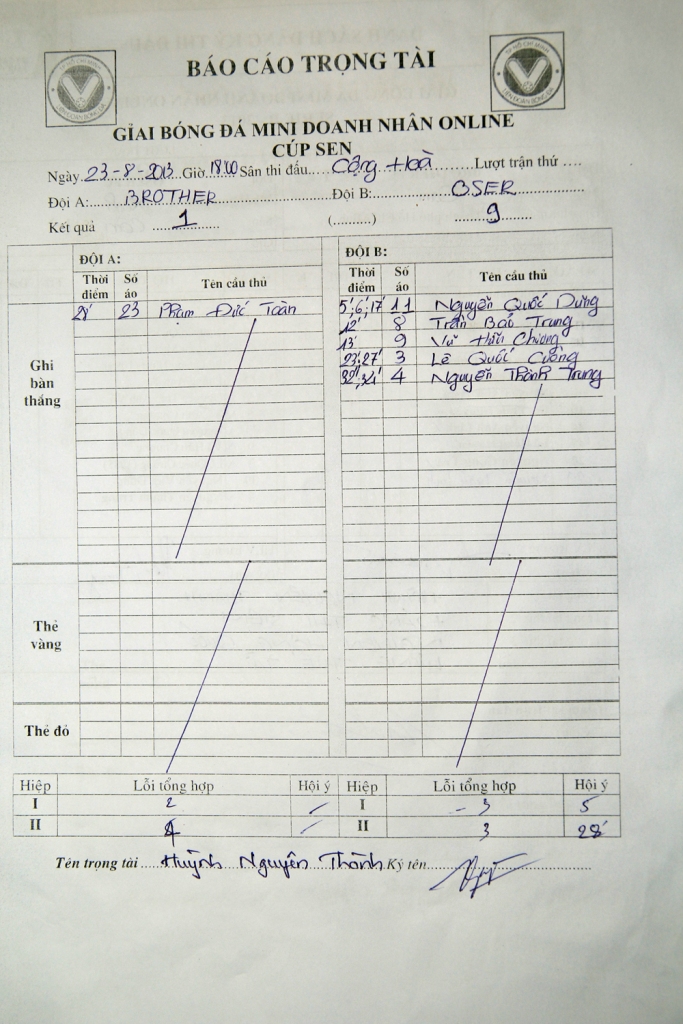 BÁO CÁO TRỌNG TÀI
GIẢI BÓNG ĐÁ MINI DOANH NHÂN ONLINE
CÚP SEN
Ngày 23-8-2013 Giờ 18:00 Sân thi đấu.... Cộng Hoà ....Lượt trận thứ ....
Đội A: BROTHER Đội B: OSER
Kết quả 1 (...........) 9
ĐỘI A: ĐỘI B:
Thời điểm Số áo Tên cầu thủ Thời điểm Số áo Tên cầu thủ
Ghi bàn thắng
28' 23 Phạm Đức Toàn 5',6',17' 11 Nguyễn Quốc Dũng
12' 8 Trần Bảo Trung
13' 9 Vũ Hữu Chương
23',27' 3 Lê Quốc Cường
4 Nguyễn Thành Trung
Thẻ vàng
Thẻ đỏ
Hiệp Lỗi tổng hợp Hội ý Hiệp Lỗi tổng hợp Hội ý
I 2 I 3 5
II 4 II 3 28'
Tên trọng tài Huỳnh Nguyên Thành Ký tên